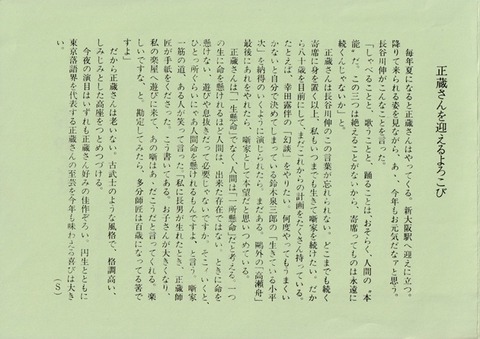 正蔵さんを迎えるよろこび
毎年夏になると正蔵さんはやってくる。新大阪駅へ迎えに立つ。
降りて来られる姿を見ながら、あゝ、今年もお元気だなァと思う。
長谷川伸がこんなことを言った。
「しゃべることと、歌うことと、踊ることは、おそらく、人間の〝本
能〟だ。この三つは絶えることがないから、寄席ってものは永遠に
続くんじゃないか」と。
正蔵さんは長谷川伸のこの言葉が忘れられない。どこまでも続く
寄席に身を置く以上、私もいつまでも生きて噺家を続けたい。だか
ら八十歳を目前にして、まだこれからの計画をたくさん持っている。
たとえば、幸田露伴の「幻談」をやりたい。何度やってもうまくい
かないと自分で決めてしまっている鈴木泉三郎の「生きている小平
次」を納得のいくように演じられたら。まだある。鷗外の「高瀬舟」
最後にあれをやれたら、噺家として本望だと思いつめている。
正蔵さんは「一生懸命」でなく、人間は「一所懸命」だと考える。一つ
の生に命を懸けれるほど人間は、出来た存在ではない。ときに命を
懸けない、遊びや息抜きだって必要じゃないですか。そこいくと、
ひとっ所くらいにゃあ人間命を懸けれるもんですよ、と言う。噺家
一筋の道、ある人が笑って言った「私に長男が生れたとき、正蔵師
匠が手紙をくださった。こう書いてある。お子さんが大きくなり、
私の楽屋へ遊びに来て、あの噺はあゝだこうだと言ってくれる。楽
しいですな、と。勘定してみたら、多分師匠は百歳になってる筈で
すよ」
だから正蔵さんは老いない。古武士のような風格で、格調高い、
しみじみとした高座をつとめつづける。
今夜の演目はいずれも正蔵さん好みの佳作ぞろい。円生とともに
東京落語界を代表する正蔵さんの至芸を今年も味わえる喜びは大き
い。
（S）